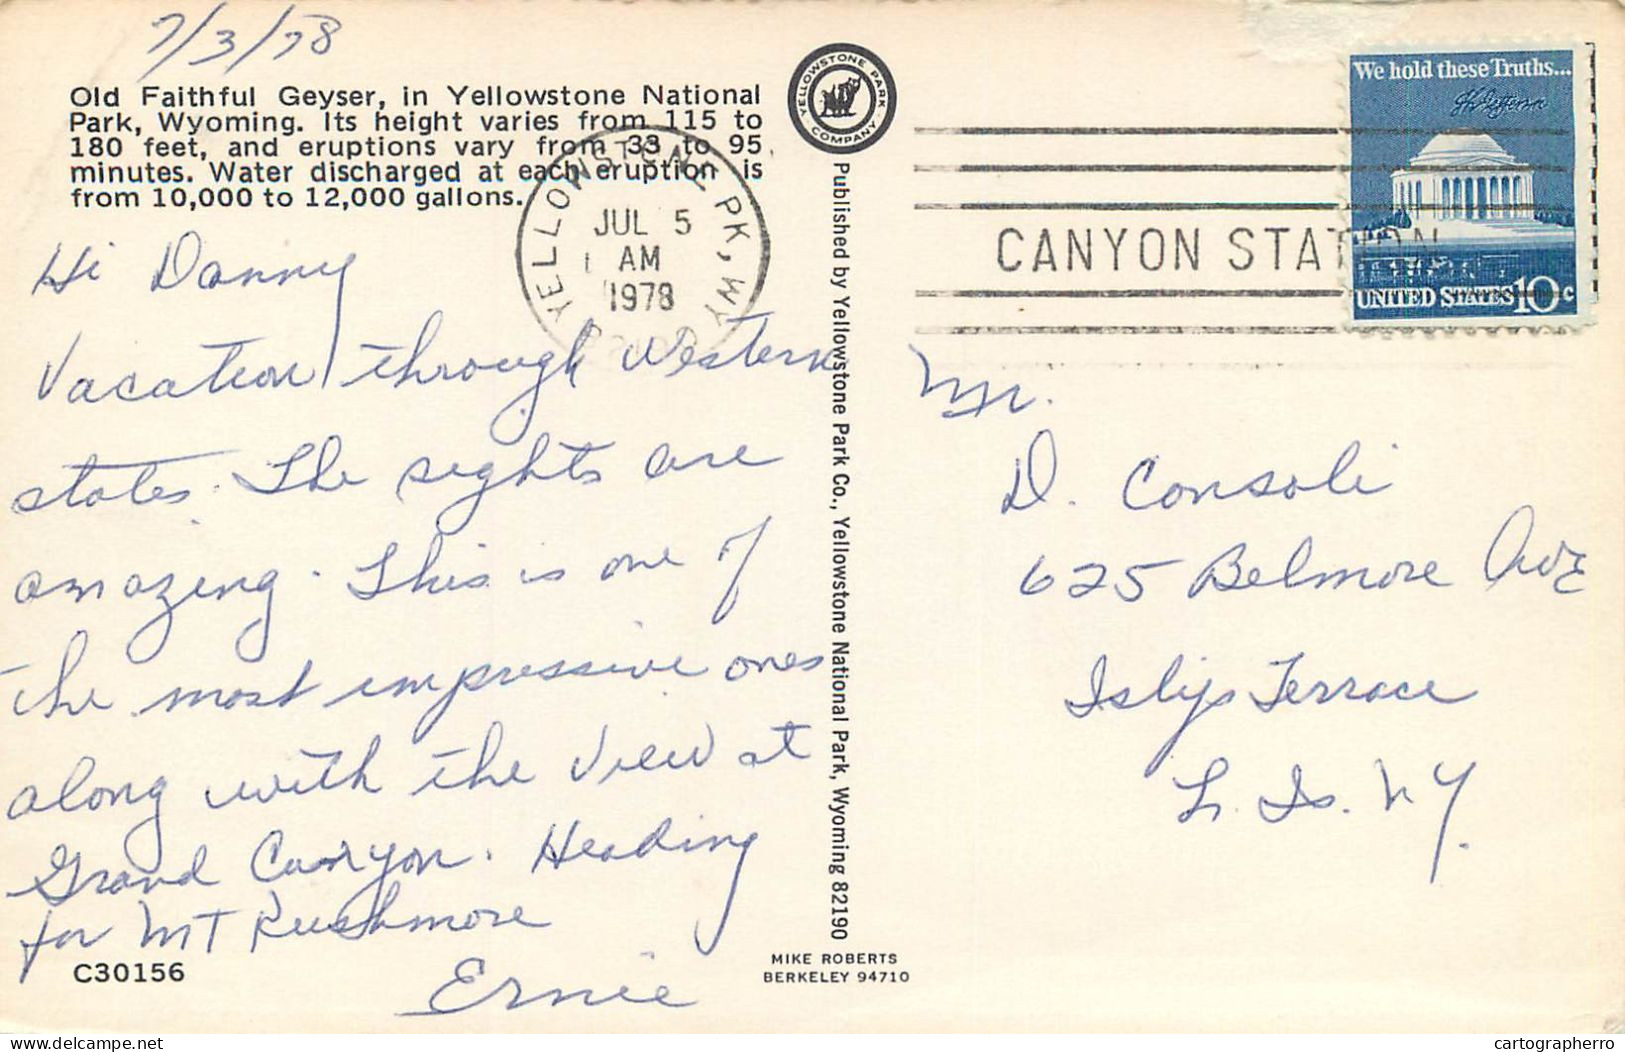 7/3/78
Old Faithful Geyser, in Yellowstone National
Park, Wyoming. Its height varies from 115 to
180 feet, and eruptions vary from 33 to 95
minutes. Water discharged at each eruption is
from 10,000 to 12,000 gallons.
Hi Danny
Vacation through Western
states. The sights are
amazing. This is one of
the most impressive ones
along with the view at
Grand Canyon. Heading
for MT Rushmore
Ernie
C30156
YELLOWSTONE PK, WY
JUL 5
AM
1978
YELLOWSTONE PARK
COMPANY
Published by Yellowstone Park Co., Yellowstone National Park, Wyoming 82190
MIKE ROBERTS
BERKELEY 94710
CANYON STATION
We hold these Truths...
Th Jefferson
UNITED STATES 10c
Mr.
D. Consoli
625 Belmore Ave
Islip Terrace
L. Is. NY.
delcampe.net
cartographerro